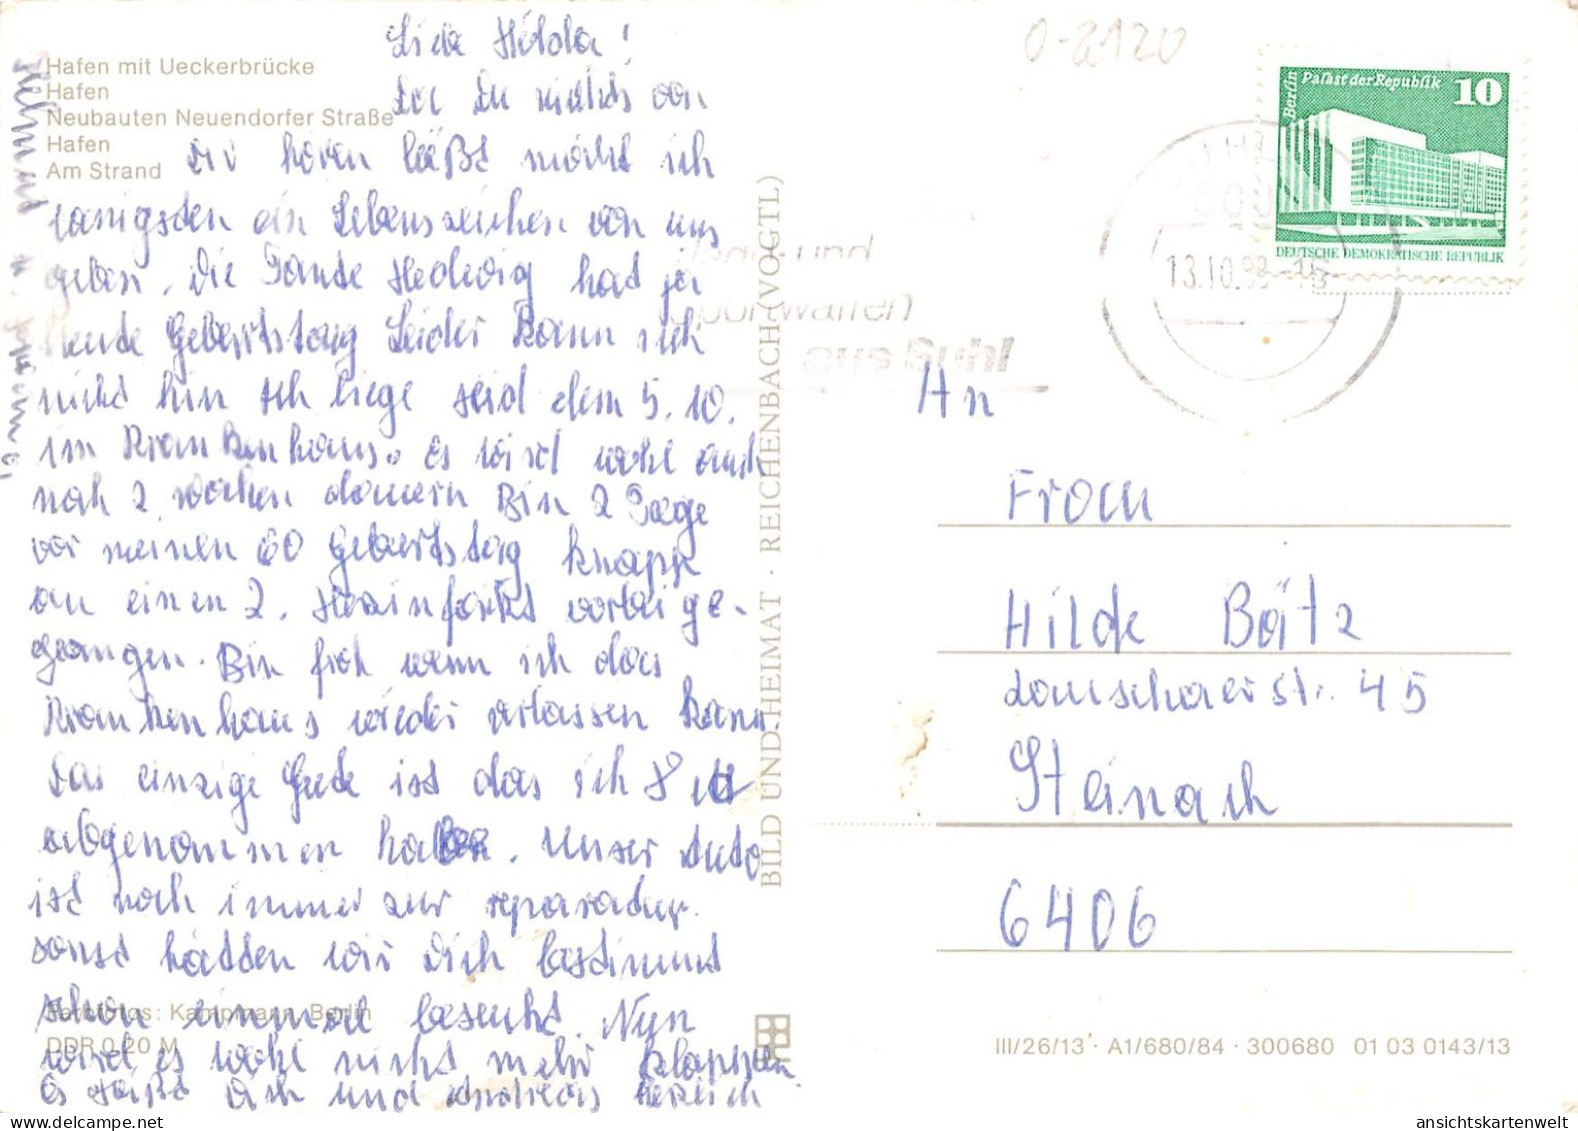 Hafen mit Ueckerbrücke
Hafen
Neubauten Neuendorfer Straße
Hafen
Am Strand
Liebe Hilda!
Da Du nichts von
Dir hören läßt möcht ich
wenigsden ein Lebenszeichen von uns
geben. Die Tande Hedwig had ja
heute Geburtstag Leider kann ich
nicht hin Ich liege seid dem 5.10.
im Krankenhaus. Es wird wohl auch
noch 2 wochen dauern Bin 2 Tage
vor meinen 60 Geburtstag knapp
an einen 2. Herzinfarkt vorbei ge-
gangen. Bin froh wenn ich das
Krankenhaus wieder verlassen kann.
Das einzige Gude ist das ich 8
abgenommen habe. Unser Auto
ist noch immer zur reparadur.
sonst hädden wir Dich bestimmt
schon einmal besucht. Nun
wird es wohl nicht mehr klappen
Es Grüßt Dich und Andreas herzlich
Farbfotos: Kampmann, Berlin
DDR 0,20 M
BILD UND HEIMAT · REICHENBACH (VOGTL)
0-2120
Berlin
Palast der Republik
10
DEUTSCHE DEMOKRATISCHE REPUBLIK
13.10.
Jagd- und
Sportwaffen
aus Suhl
An
Frau
Hilde Bätz
Lauschaerstr. 45
Steinach
6406
III/26/13 · A1/680/84 · 300680 01 03 0143/13
ansichtskartenwelt